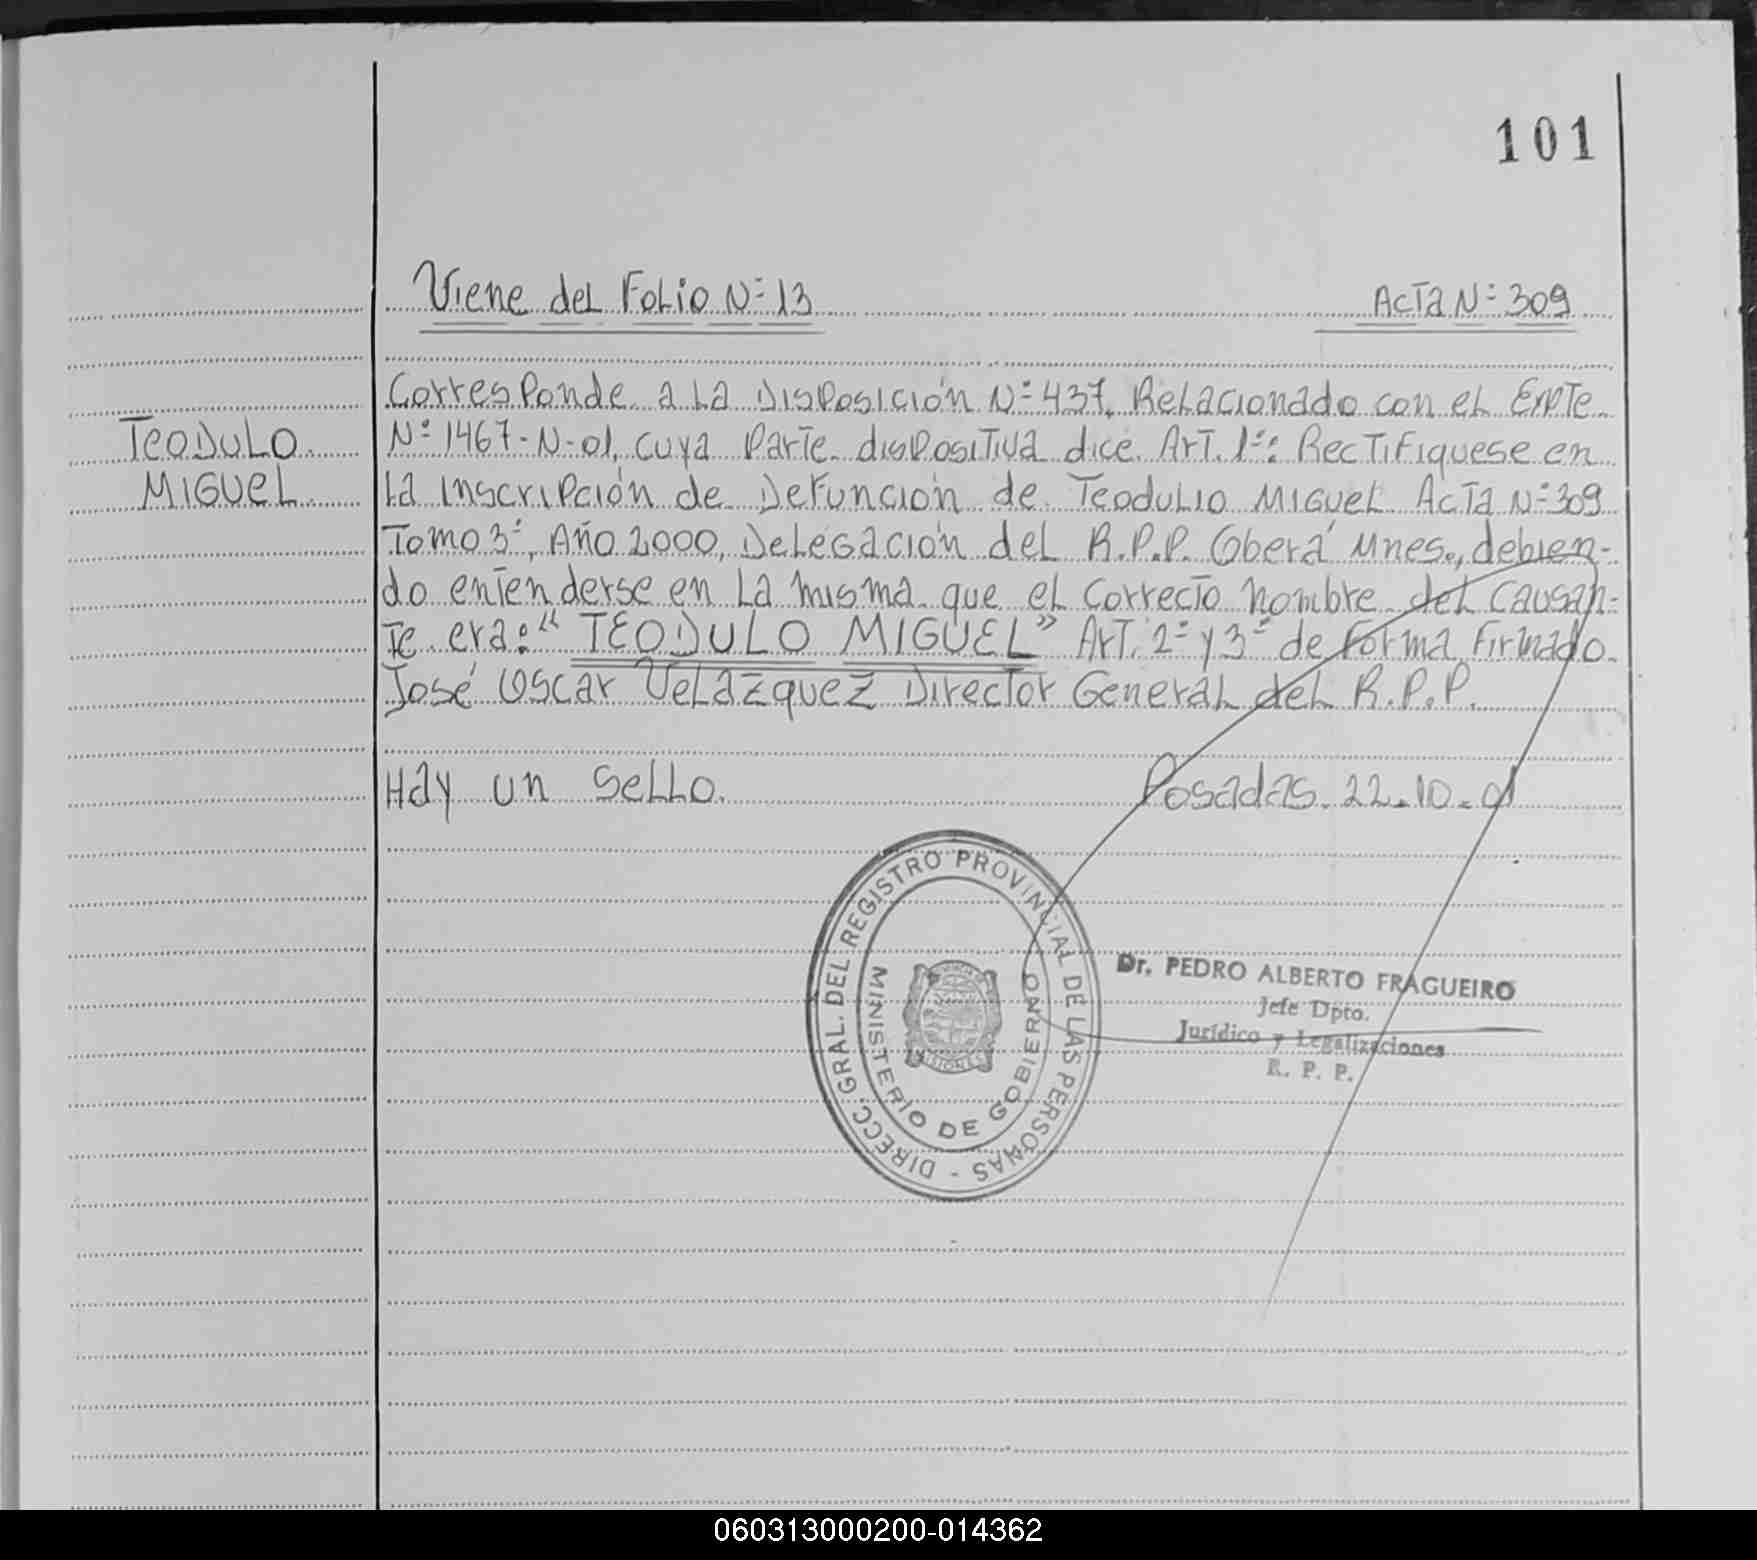 101
Viene del Folio Nº 13 Acta Nº 309
Corresponde a la Disposición Nº 437, Relacionado con el Expte
TEODULO
Nº 1467-N-01, cuya Parte dispositiva dice. Art. 1º: Rectifiquese en
MIGUEL
la inscripción de Defunción de Teodulio Miguel Acta Nº 309
Tomo 3º, Año 2000, Delegación del R.P.P. Oberá Mnes., debien-
do entenderse en la misma que el correcto nombre del causan-
te era: "TEODULO MIGUEL" Art. 2º y 3º de forma Firmado.
José Oscar Velazquez Director General del R.P.P.
Hay un sello. Posadas. 22-10-01
DIRECC. GRAL. DEL REGISTRO PROVINCIAL DE LAS PERSONAS -
MINISTERIO DE GOBIERNO
MISIONES
Dr. PEDRO ALBERTO FRAGUEIRO
Jefe Dpto.
Jurídico y Legalizaciones
R. P. P.
060313000200-014362